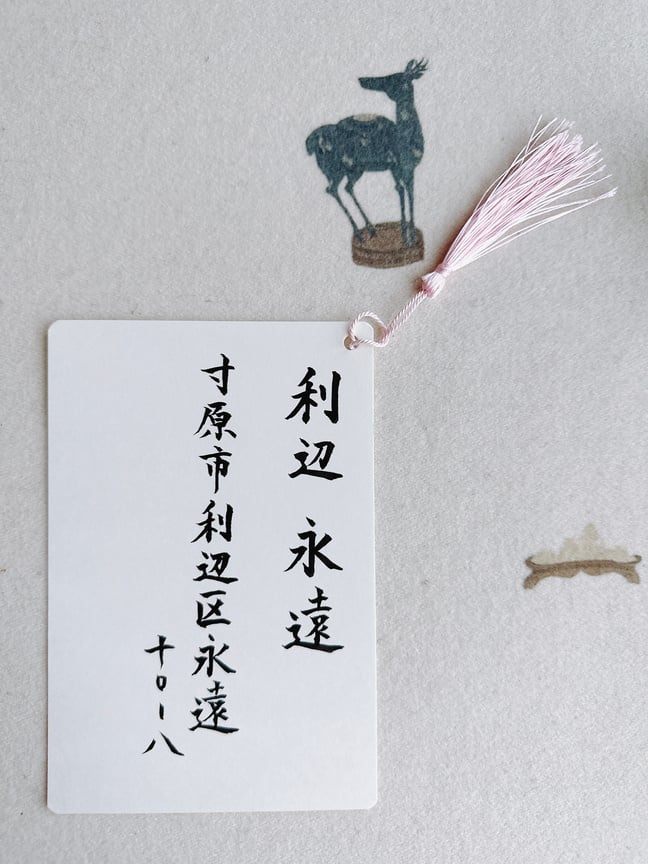 利辺 永遠
寸原市利辺区永遠
十〇ー八